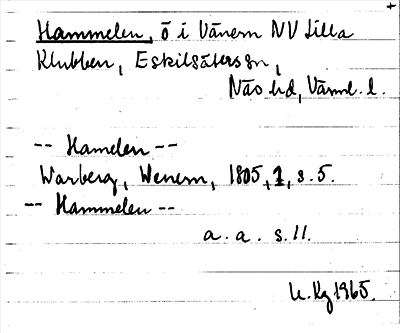 Hammelen, ö i Vänern NV Lilla
Klubben, Eskilsäterssn,
Näs hd, Värml. l.
-- Hamelen --
Warberg, Wenern, 1805, 1, s. 5.
-- Hammelen --
a. a. s. 11.
U. Kg 1965.